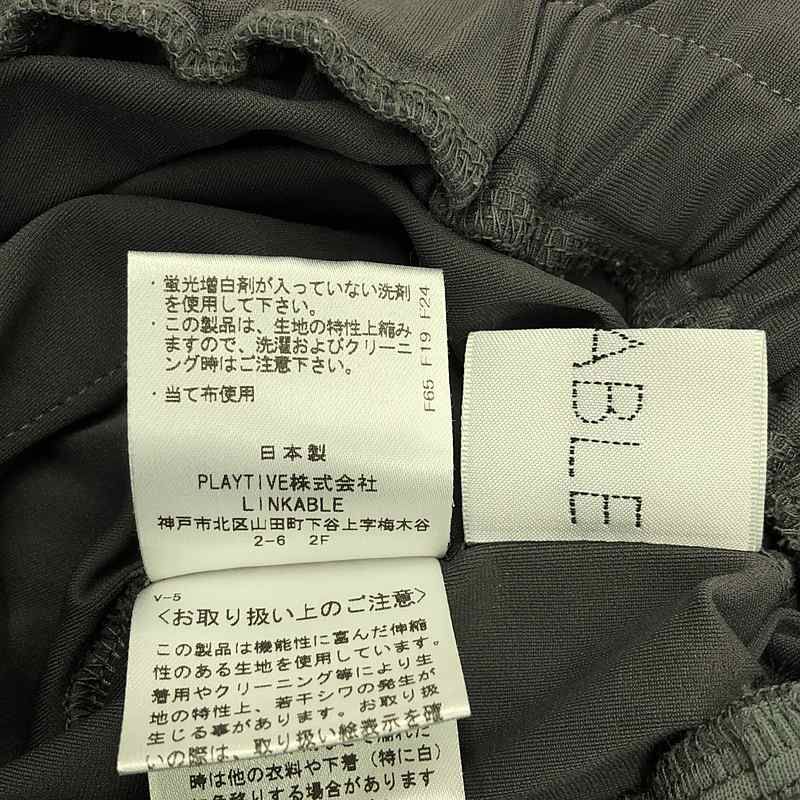 ・蛍光増白剤が入っていない洗剤
を使用して下さい。
・この製品は、生地の特性上縮み
ますので、洗濯およびクリーニ
ング時はご注意下さい。
・当て布使用
F65 F19 F24
日本製
PLAYTIVE株式会社
LINKABLE
神戸市北区山田町下谷上字梅木谷
2-6 2F
ABLE
V-5
<お取り扱い上のご注意>
この製品は機能性に富んだ伸縮
性のある生地を使用しています。
着用やクリーニング等により生
地の特性上、若干シワの発生が
生じる事があります。お取り扱
いの際は、取り扱い絵表示を確
時は他の衣料や下着(特に白)
に色移りする場合があります